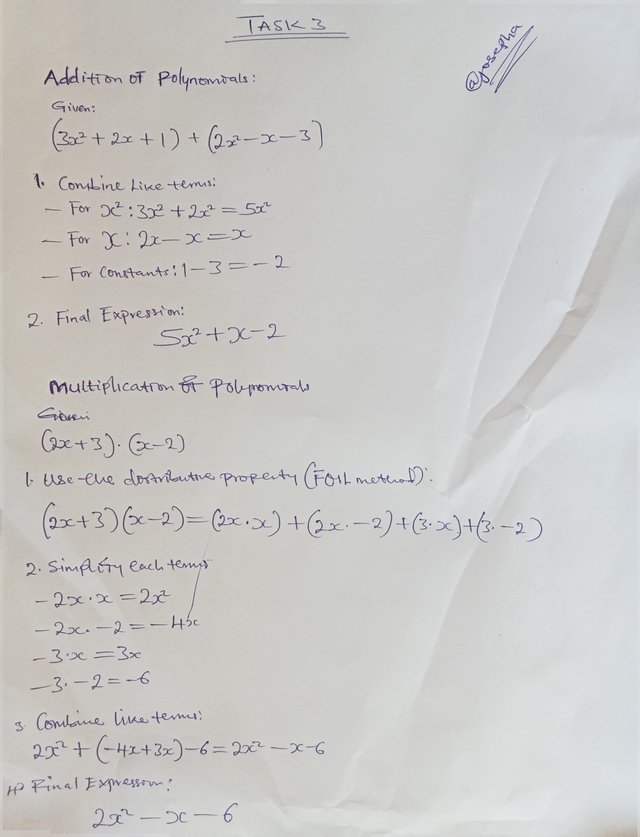 TASK 3
@josepha
Addition of Polynomials:
Given:
(3x² + 2x + 1) + (2x² - x - 3)
1. Combine Like terms:
- For x²: 3x² + 2x² = 5x²
- For x: 2x - x = x
- For Constants: 1 - 3 = -2
2. Final Expression:
5x² + x - 2
Multiplication of Polynomials
Given:
(2x+3)·(x-2)
1. Use the distributive property (FOIL method):
(2x+3)(x-2) = (2x·x) + (2x·-2) + (3·x) + (3·-2)
2. Simplify each terms
- 2x·x = 2x²
- 2x·-2 = -4x
- 3·x = 3x
- 3·-2 = -6
3. Combine like terms:
2x² + (-4x+3x) - 6 = 2x² - x - 6
4. Final Expression:
2x² - x - 6